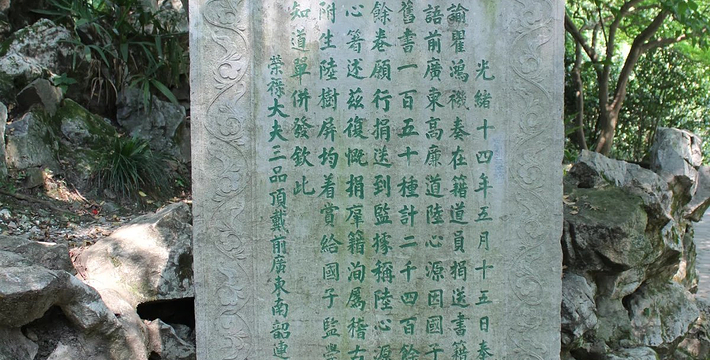 光緒十四年五月十五日奉
諭瞿鴻禨奏在籍道員捐送書籍
語前廣東高廉道陸心源因國子
舊書一百五十種計二千四百餘
餘卷願行捐送到監據稱陸心源
心箸述茲復慨捐庫籍洵屬稽古
附生陸樹屏均着賞給國子監學
知道單併發欽此
榮祿大夫三品頂戴前廣東南韶連